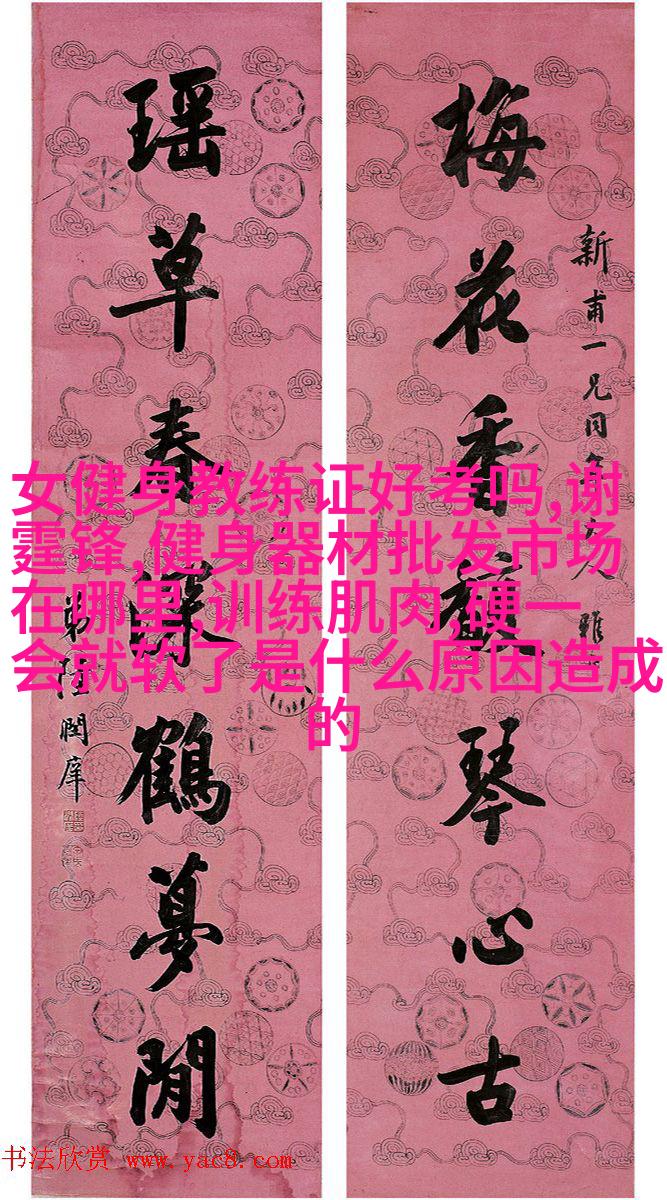 梅花香馥琴心古
新甫一兄同年大人雅
瑶草春深鹤夢閒
弟陸潤庠
女健身教练证好考吗,谢
霆锋,健身器材批发市场
在哪里,训练肌肉,硬一
会就软了是什么原因造成
的
书法欣赏 www.yac8.com